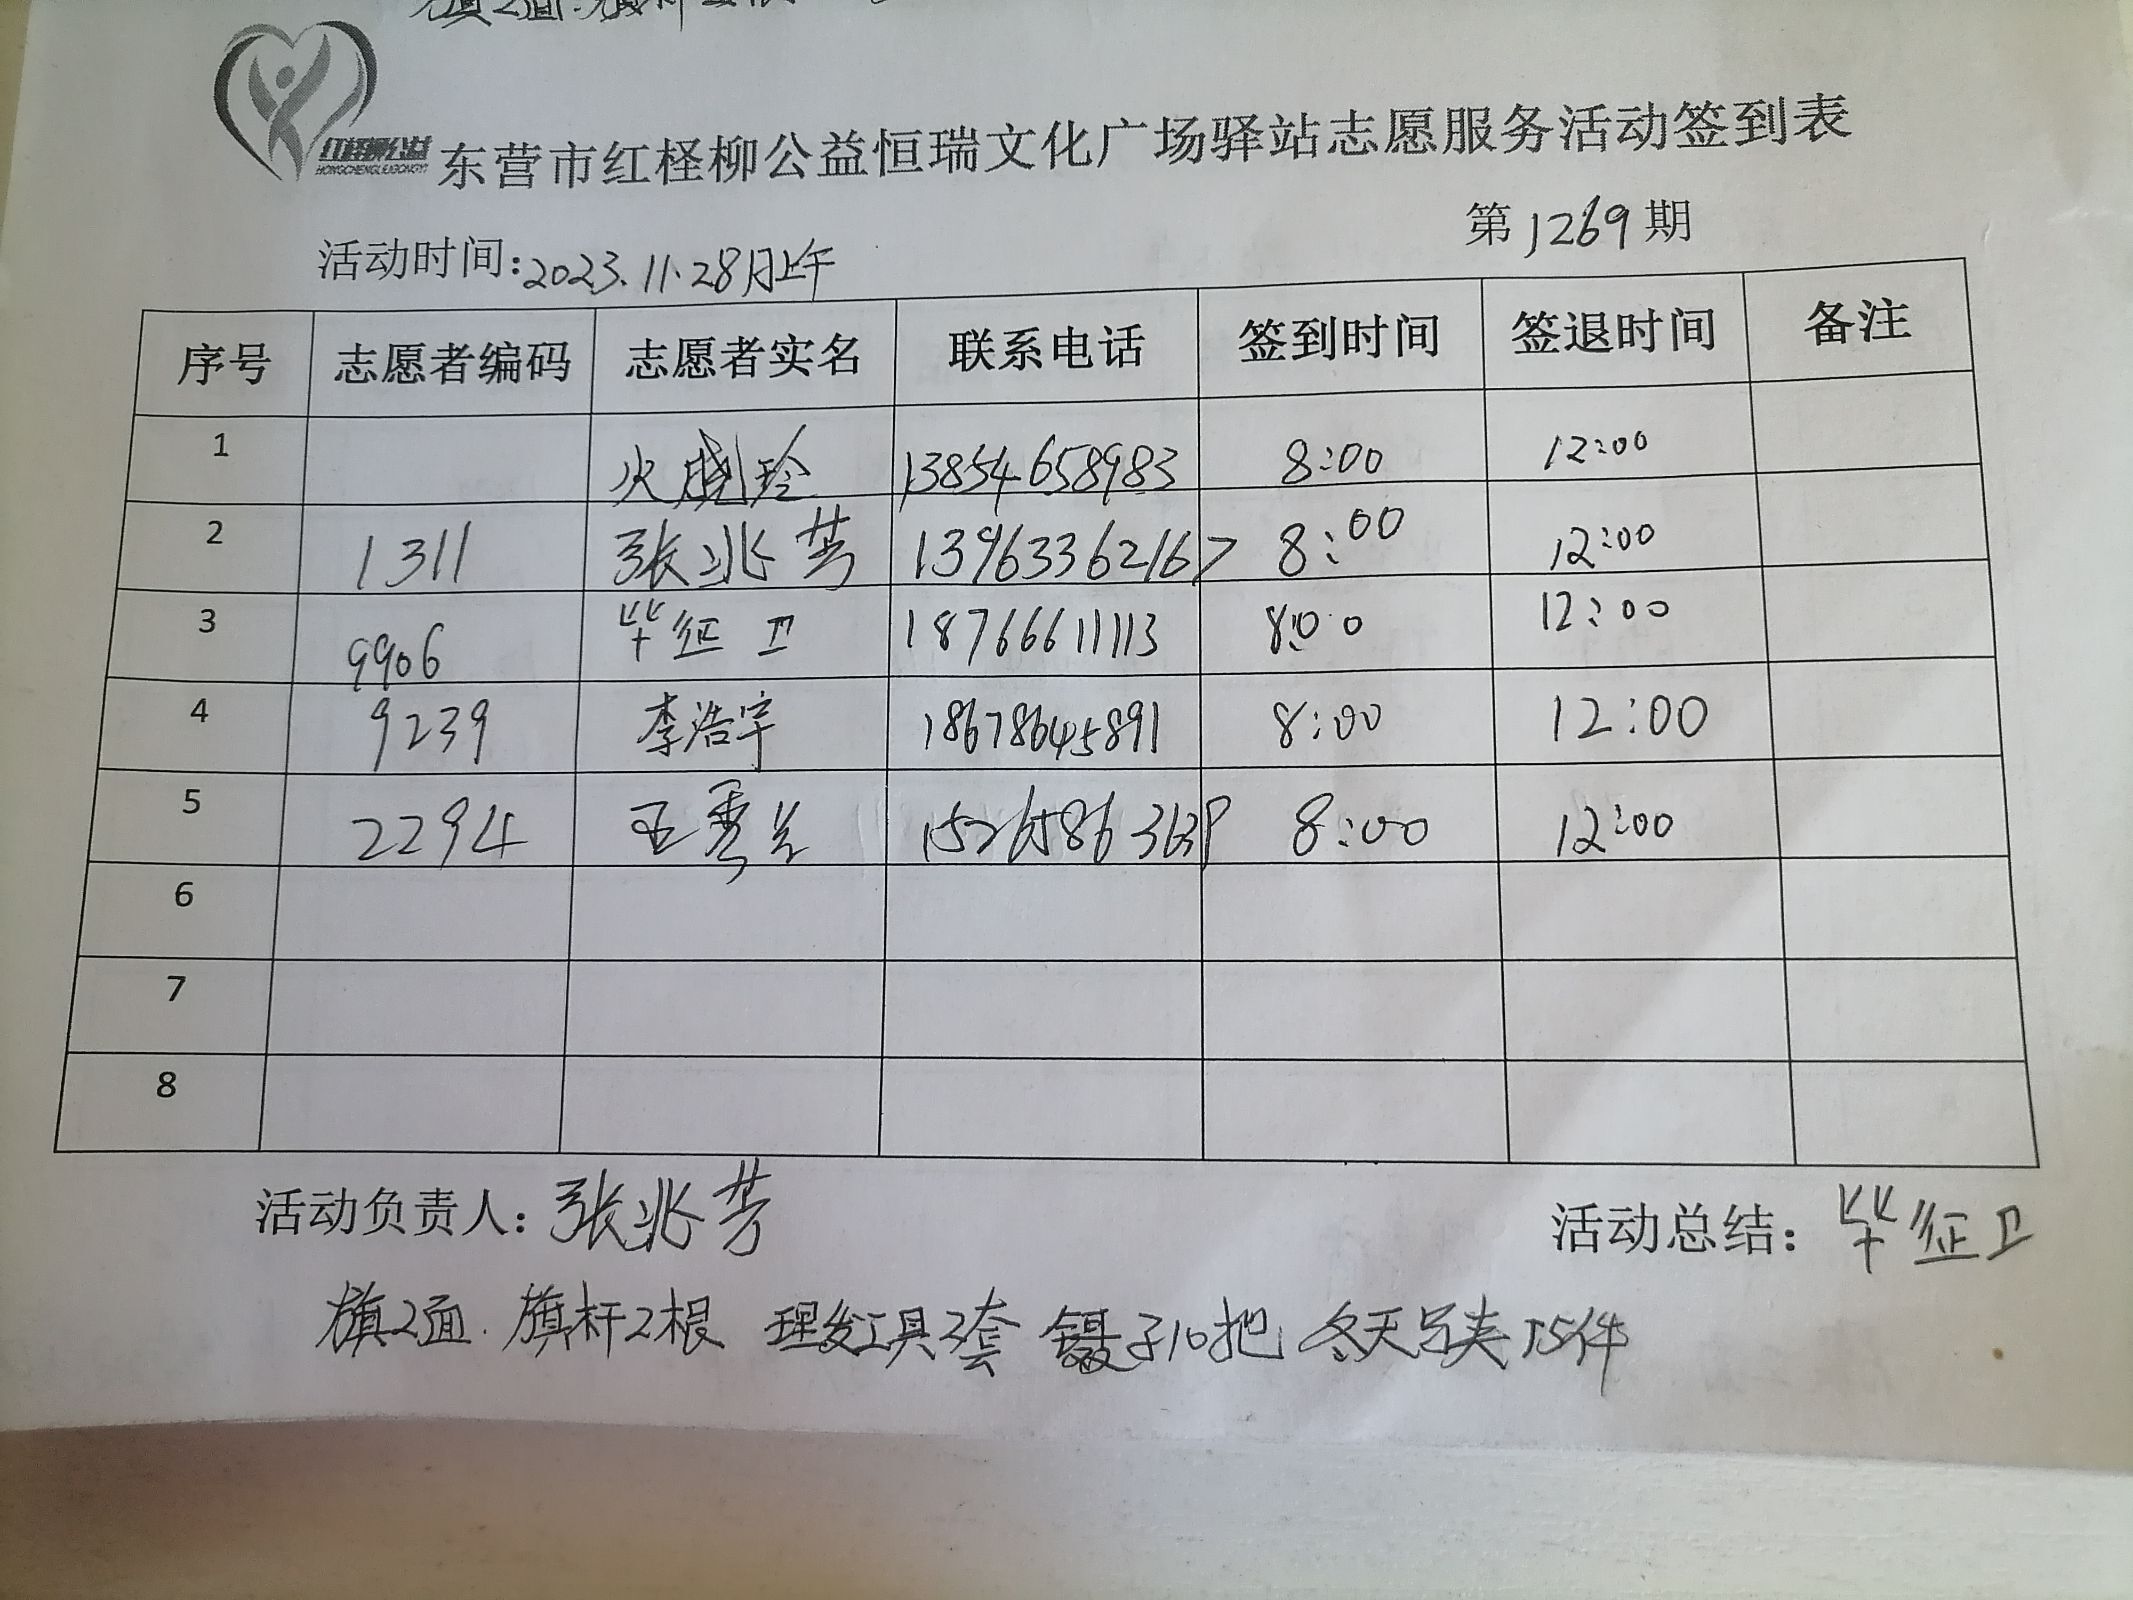 红柽柳公益
HONGCHENGLIUGONGYI
东营市红柽柳公益恒瑞文化广场驿站志愿服务活动签到表
第1269期
活动时间:2023.11.28日上午
序号 志愿者编码 志愿者实名 联系电话 签到时间 签退时间 备注
1 火晓玲 13854658983 8:00 12:00
2 1311 张兆芳 13963362167 8:00 12:00
3 9906 毕征卫 18766611113 8:00 12:00
4 9239 李浩宇 18678645891 8:00 12:00
5 2294 王秀兰 8:00 12:00
6
7
8
活动负责人:张兆芳 活动总结:毕征卫
旗2面.旗杆2根 理发工具2套 镊子10把 冬天马夹15件